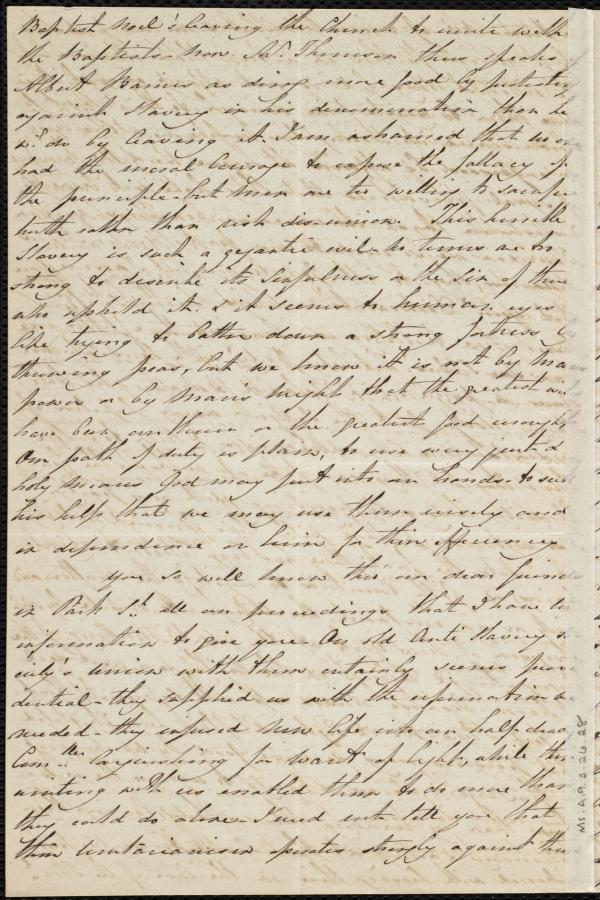 Baptist Noel's leaving the Church to unite with
the Baptists - now Mr. Thomson thus speaks
Albert Barnes as doing more good by protesting
against Slavery in his denomination than he
wd. do by leaving it. I am ashamed that we
had the moral Courage to expose the fallacy of
the principle - but men are too willing to sacrifice
truth rather than risk dis-union. This horrible
Slavery is such a gigantic evil no terms are too
strong to describe its Sinfulness or the Sin of those
who uphold it. & it seems to human eyes
like trying to batter down a strong fortress by
throwing peas, but we know it is not by man's
power or by man's might that the greatest evils
have been overthrown or the greatest good wrought
Our path of duty is plain, to use every just &
holy means God may put into our hands - to seek
his help that we may use them wisely and
in dependence on him for their efficiency
You so well know thro' our dear friends
in Park St. all our proceedings that I have no
information to give you. Our old Anti Slavery So-
ciety's union with them certainly seems provi-
dential - they supplied us with the information we
needed - they infused new life into our half-dead
Comtee. languishing for want of light, while their
uniting with us enabled them to do more than
they could do alone. I need not tell you that
their Unitarianism operates strongly against them
Ms. A.9.2.26.28